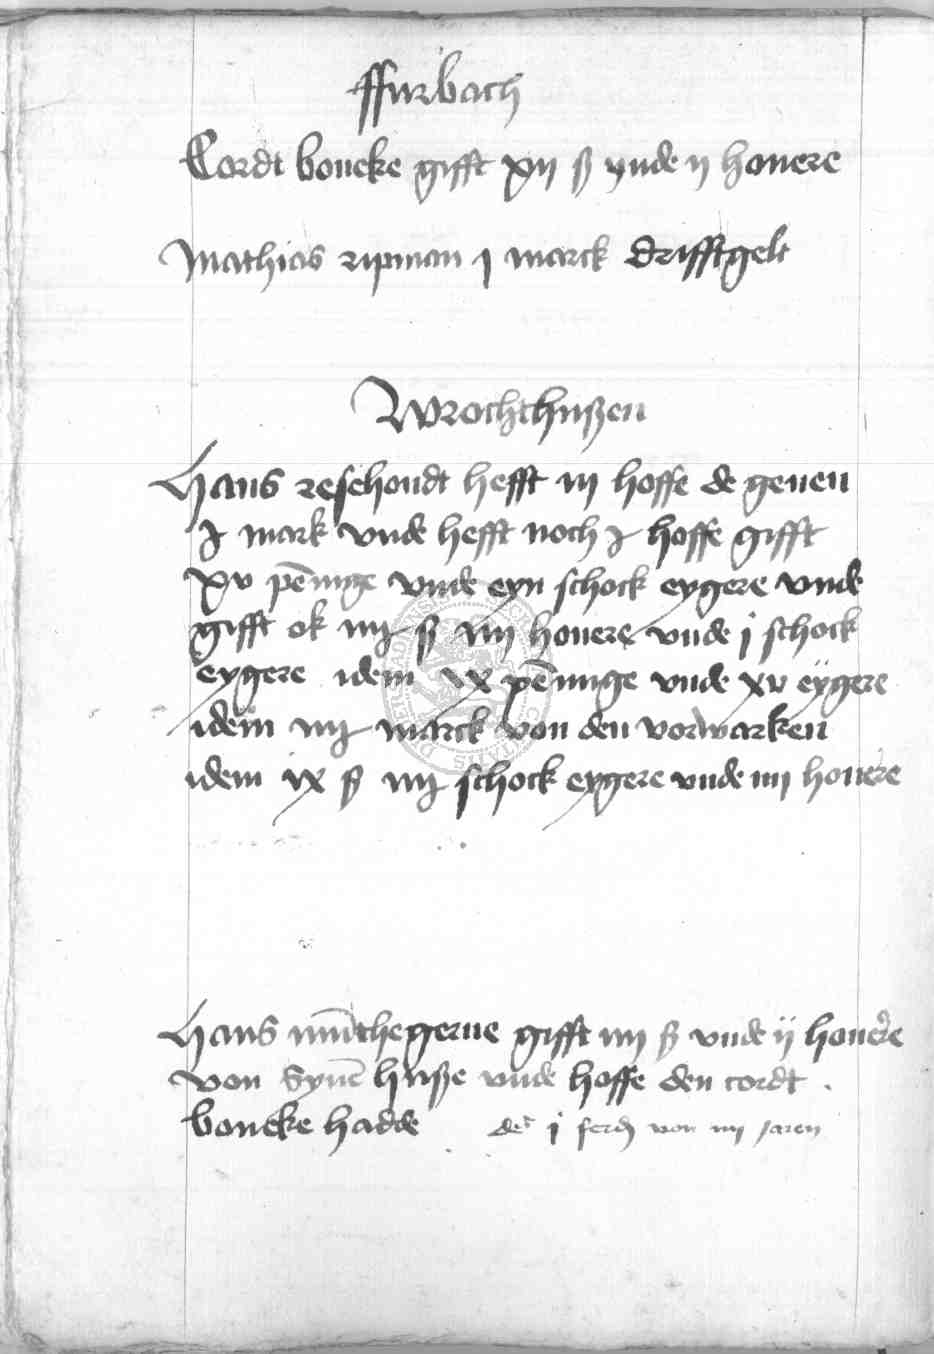 ffurbach
Cordt boneke gifft xij ß vnde ij honere
Mathias ripman j marck drifftgelt
Wrochthußen
Hans reschondt hefft iij hoffe de geuen
I mark vnde hefft noch I hoffe gifft
xv pēninge vnde eyn schock eygere vnde
gifft ok ß iiij honere vnde j schock
eygere idem ix pēninge vnde xv eygere
idem marck von den vorwarken
idem ix ß schock eygere vnde iiij honere
Hans gifft iiij ß vnde ij honere
von synē huße vnde hoffe den cordt
boneke hadde j ferd von iiij jaren